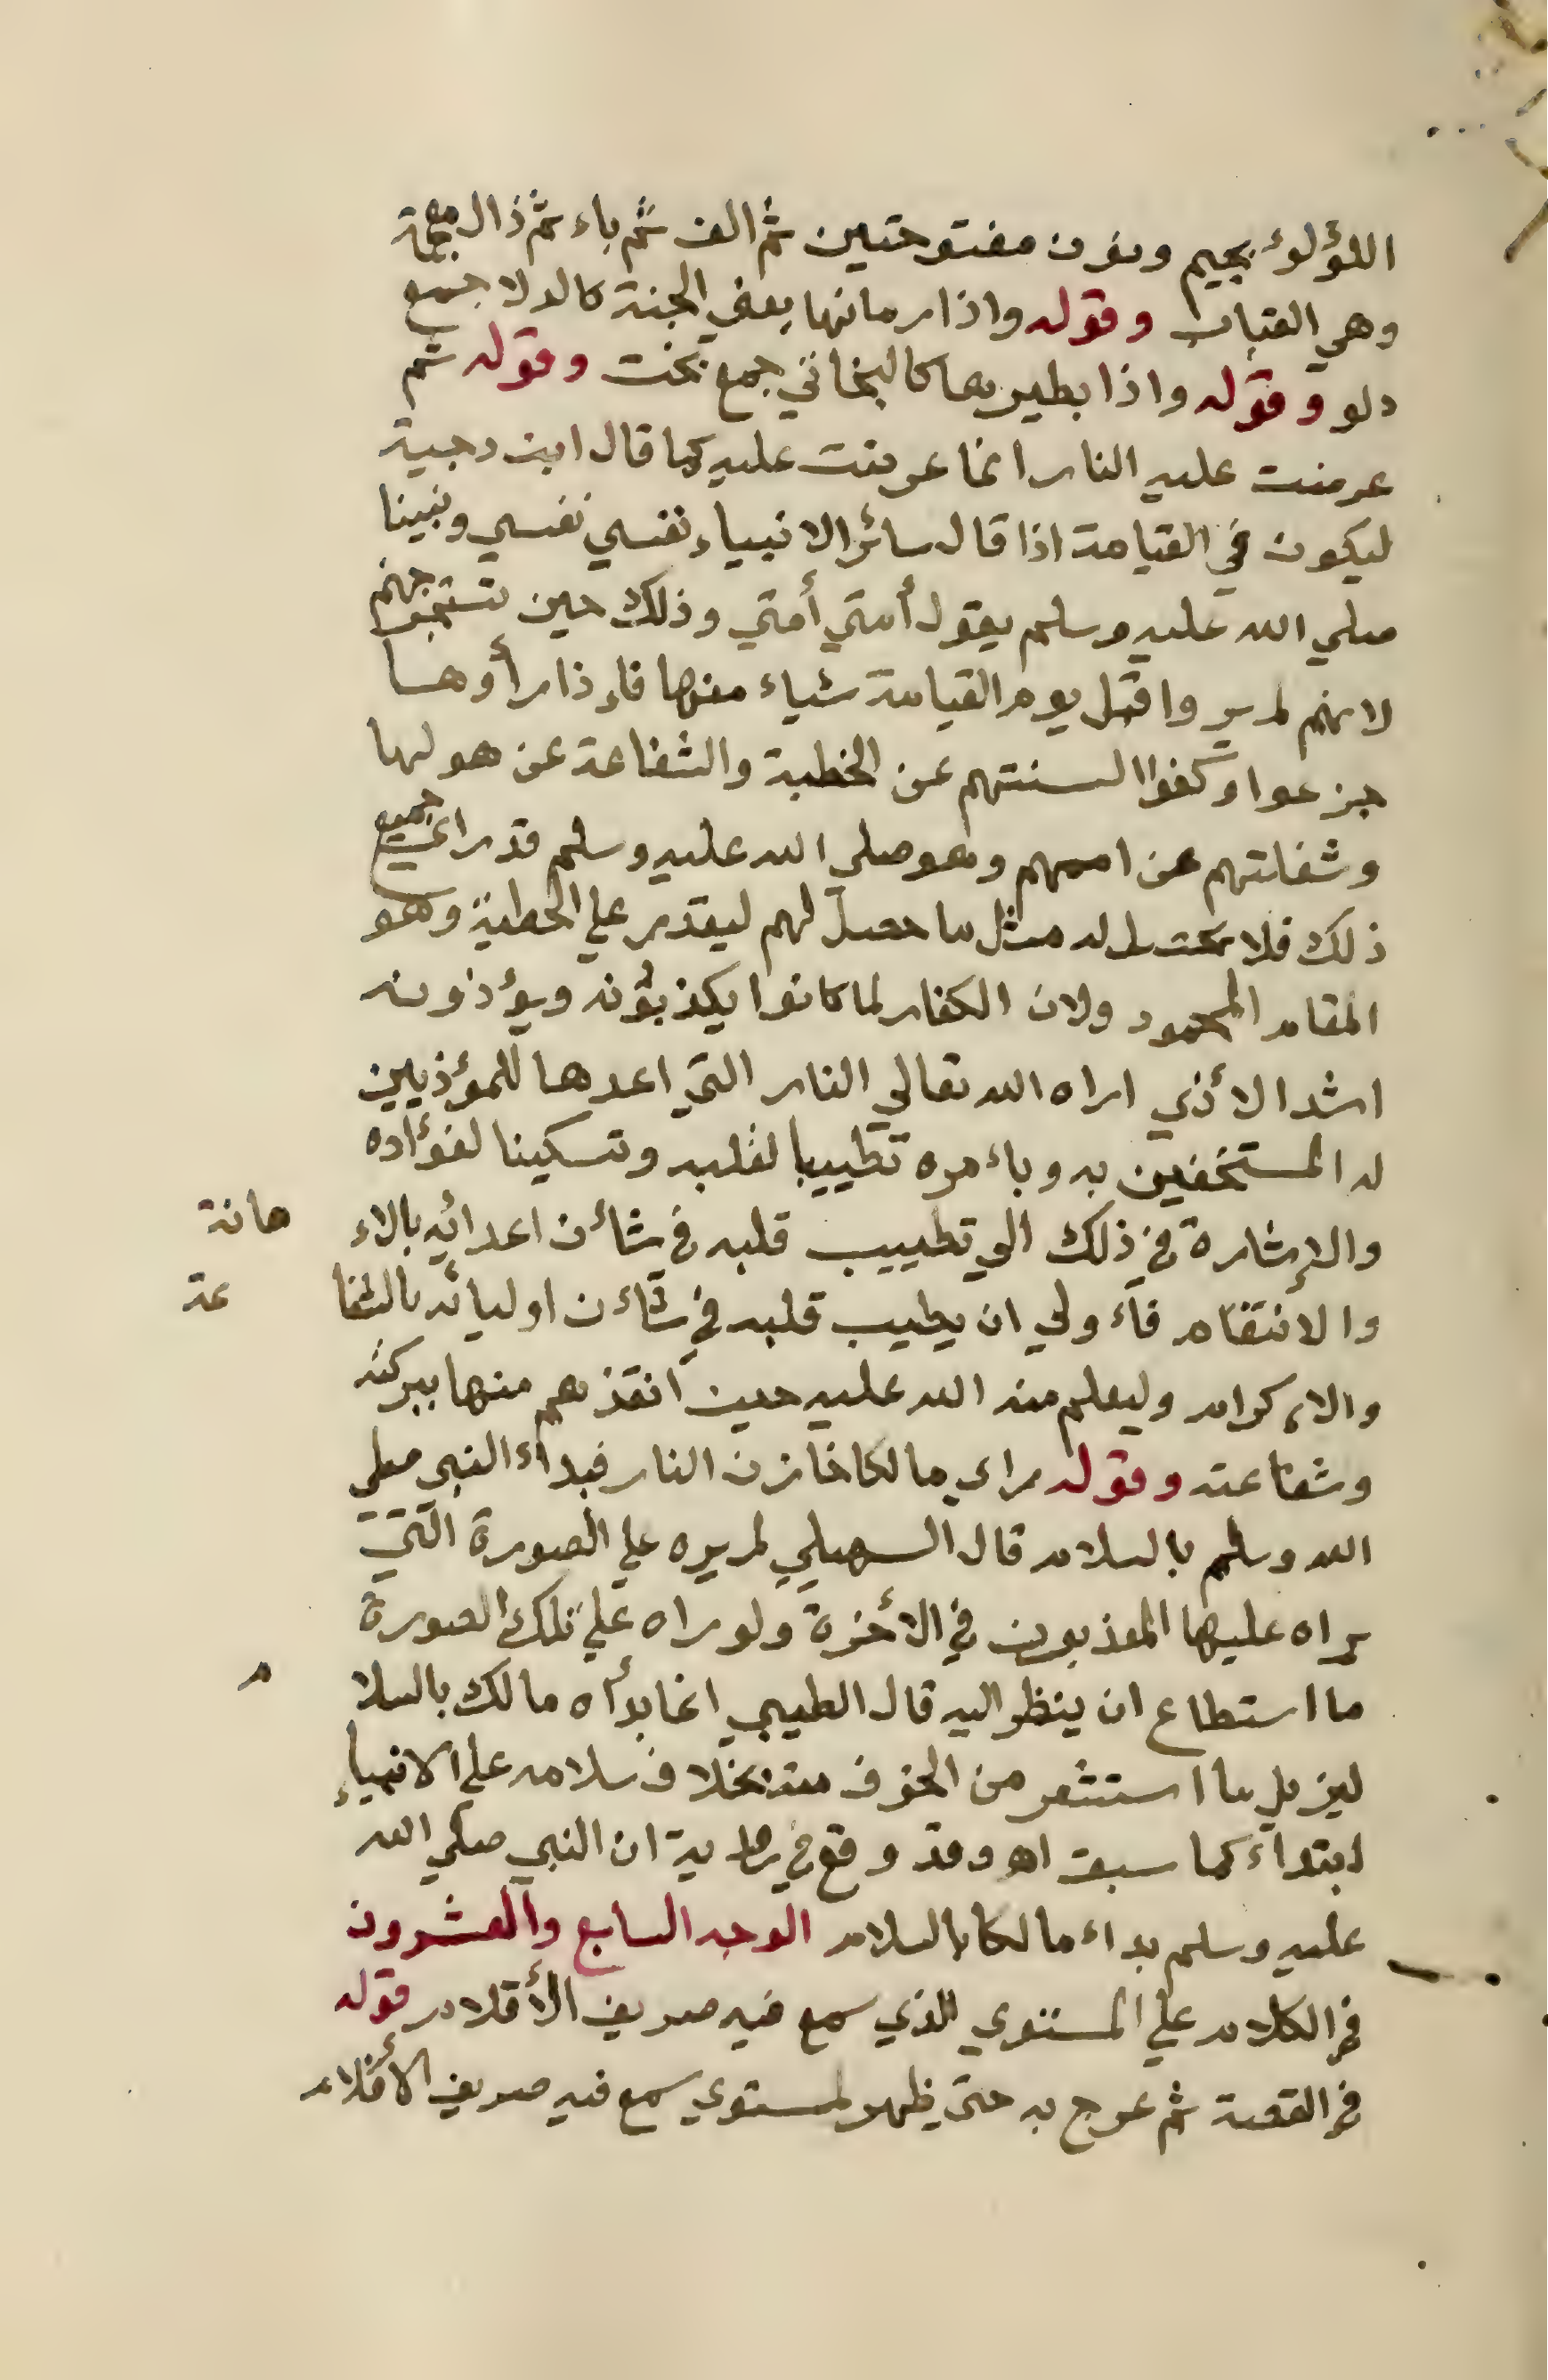 اللؤلؤ بجيم ونون مفتوحتين ثم الف ثم باء ثم ذال معجمة
وهي القباب وقوله واذا رمانها يعني الجنة كالدلا جمع
دلو وقوله واذا بطيرها كالبخاتي جمع بخت وقوله ثم
عرضت عليه النار انما عرضت عليه كما قال ابن دحية
ليكون في القيامة اذا قال سائر الانبياء نفسي نفسي ونبينا
صلي الله عليه وسلم يقول أمتي أمتي وذلك حين تسجر جهنم
لانهم لم يروا قبل يوم القيامة شياء منها فاءذا رأوها
جزعوا وكفوا السنتهم عن الخطبة والشفاعة عن هولها
وشغلتهم عن اممهم وهو صلي الله عليه وسلم قد راي جميع
ذلك فلا يحصل له مثل ما حصل لهم ليقدر علي الخطبة وهو
المقام المحمود ولان الكفار لما كانوا يكذبؤنه ويؤذونه
اشد الأذي اراه الله تعالي النار التي اعدها للمؤذيين
له المستخفين به وباءمره تطييبا لقلبه وتسكينا لفؤاده
والاءشارة في ذلك الي تطييب قلبه في شاءن اعدائه بالاءهانة
والانتقام فاءولي ان يطيب قلبه في شاءن اوليائه بالشفاعة
والاءكرام وليعلم منة الله عليه حين انقذهم منها ببركته
وشفاعته وقوله راي مالكا خازن النار فبداء النبي صلي
الله وسلم بالسلام قال السهيلي لم يره علي الصورة التي
يراه عليها المعذبون في الأخرة ولو راه علي تلك الصورة
ما استطاع ان ينظر اليه قال الطيبي انما بدأه مالك بالسلام
ليزيل ما استشعر من الخوف منه بخلاف سلامه علي الانبياء
ابتداء كما سبق اه وقد وقع في رواية ان النبي صلي الله
عليه وسلم بداء مالكا بالسلام الوجه السابع والعشرون
في الكلام علي المستوي الذي سمع فيه صريف الأقلام قوله
في القصة ثم عرج به حتي ظهر لمستوي سمع فيه صريف الأقلام